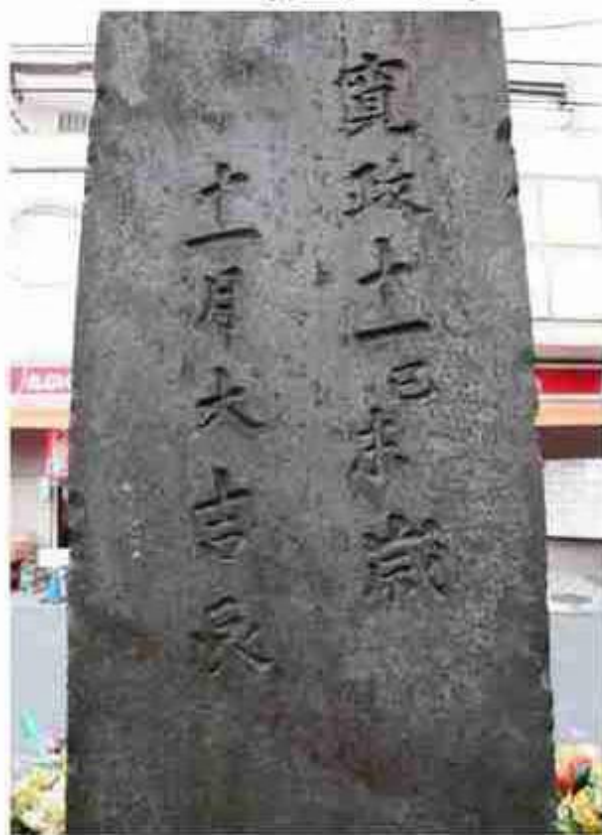 寛政十一己未歳
十一月大吉辰